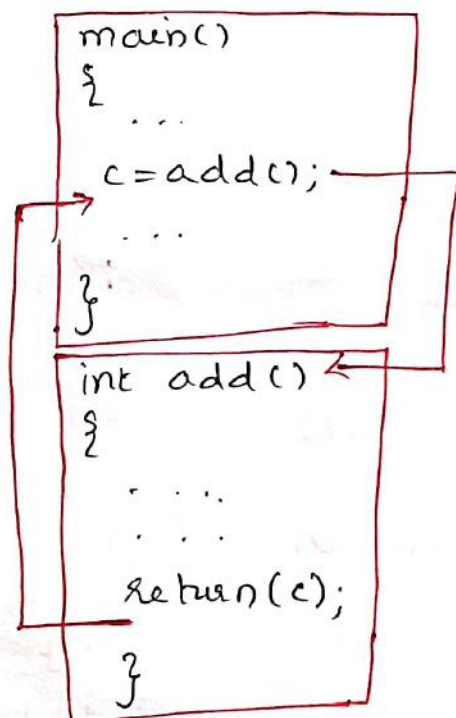 main()
{
...
c=add();
...
}
int add()
{
....
...
return(c);
}